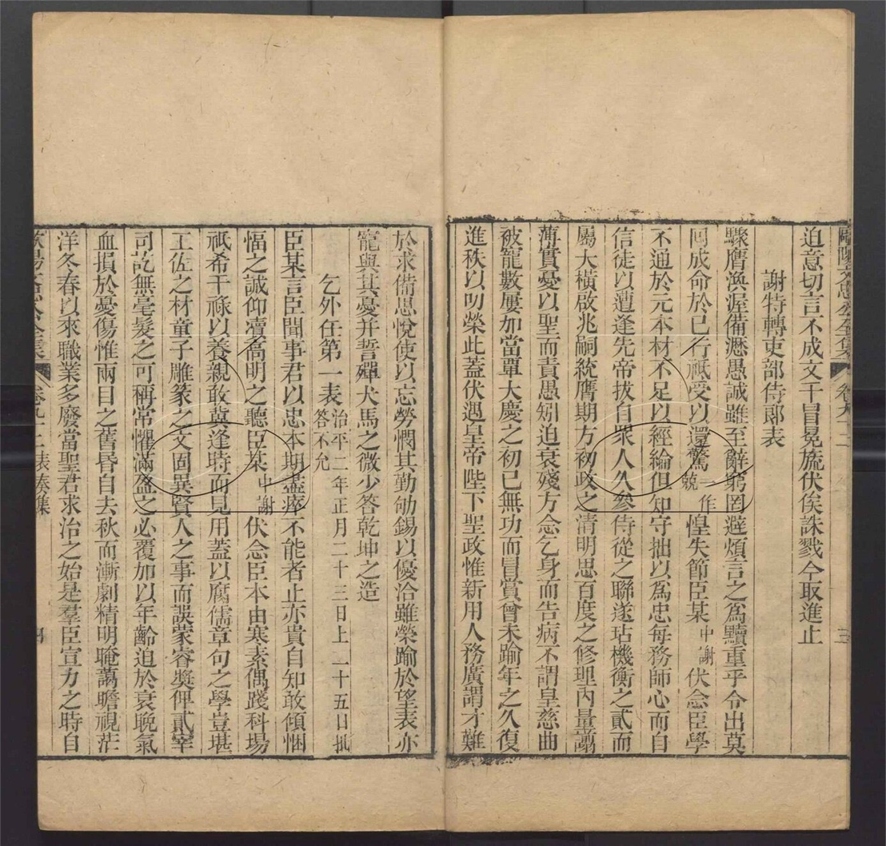 歐陽文忠公全集 卷九十二 三
迫意切言不成文干冒冕旒伏俟誅戮令取進止
謝特轉吏部侍郎表
驟膺渙渥備瀝愚誠雖至辭窮罔避煩言之為黷重乎令出莫
囘成命於已行祇受以還驚一作兢惶失節臣某中謝伏念臣學
不通於元本材不足以經綸但知守拙以為忠每務師心而自
信徒以遭逢先帝拔自眾人久參侍從之聯遂玷機衡之貳而
屬大橫啟兆嗣統膺期方初政之清明思百度之修理內量翦
薄實憂以聖而責愚矧迫衰殘方念乞身而告病不謂皇慈曲
被寵數屢加當覃大慶之初已無功而冒賞曾未踰年之久復
進秩以叨榮此蓋伏遇皇帝陛下聖政惟新用人務廣謂才難
於求備思悅使以忘勞憫其勤劬錫以優洽雖榮踰於望表亦
寵與其憂并誓殫犬馬之微少答乾坤之造
乞外任第一表治平二年正月二十三日上二十五日批答不允
臣某言臣聞事君以忠本期盡瘁不能者止亦貴自知敢傾悃
愊之誠仰瀆高明之聽臣某中謝伏念臣本由寒素偶踐科場
祇希干祿以養親敢冀逢時而見用蓋以腐儒章句之學豈堪
王佐之材童子雕篆之文固異賢人之事而誤蒙睿獎俾貳宰
司訖無毫髮之可稱常懼滿盈之必覆加以年齡迫於衰晚氣
血損於憂傷惟兩目之舊昏自去秋而漸劇精明晻藹瞻視茫
洋冬春以來職業多廢當聖君求治之始是羣臣宣力之時自
歐陽文忠公全集 卷九十二 表奏集 四